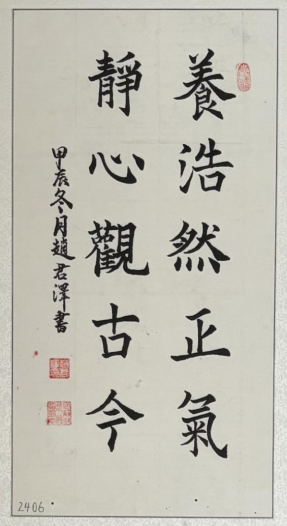 養浩然正氣
靜心觀古今
甲辰冬月趙君澤書
2406